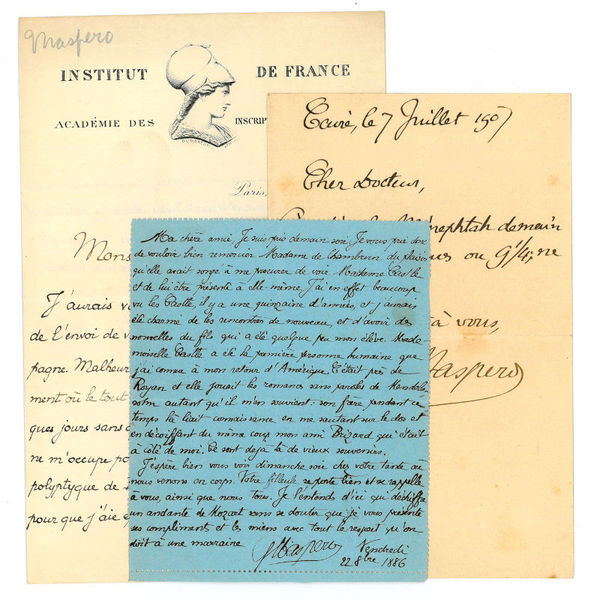 Maspero
INSTITUT DE FRANCE
ACADÉMIE DES INSCRIP
Paris,
Mons
J'aurais v
de l'envoi de v
pagne. Malheur
ment où le tout
ques jours sans
ne m'occupe p
polyptyque de
pour que j'aie
Caire, le 7 Juillet 1907
Cher Docteur,
Ménephtah demain
ou 9 1/4; ne
à vous,
Maspero
Ma chère amie, Je suis pris demain soir. Je vous prie donc
de vouloir bien remercier Madame de Chambrun du plaisir
qu'elle avait songé à me procurer de voir Madame
et de lui être présenté à elle même. J'ai en effet beaucoup
vu les il y a une quinzaine d'années, et j'aurais
été charmé de les rencontrer de nouveau, et d'avoir des
nouvelles du fils qui a été quelque peu mon élève. Made
moiselle a été la première personne humaine que
j'ai connue à mon retour d'Amérique. C'était près de
Royan et elle jouait les romances sans paroles de Mendels
sohn autant qu'il m'en souvient: son frère pendant ce
temps là liait connaissance en me sautant sur le dos et
en décoiffant du même coup mon ami qui était
à côté de moi. Ce sont déjà là de vieux souvenirs.
J'espère bien vous voir dimanche soir chez votre tante où
nous venons en corps. Votre filleule se porte bien et se rappelle
à vous, ainsi que nous tous. Je l'entends d'ici qui déchiffre
un andante de Mozart sans se douter que je vous présente
ses compliments et les miens avec tout le respect qu'on
doit à une marraine
GMaspero
Vendredi
22 8bre 1886